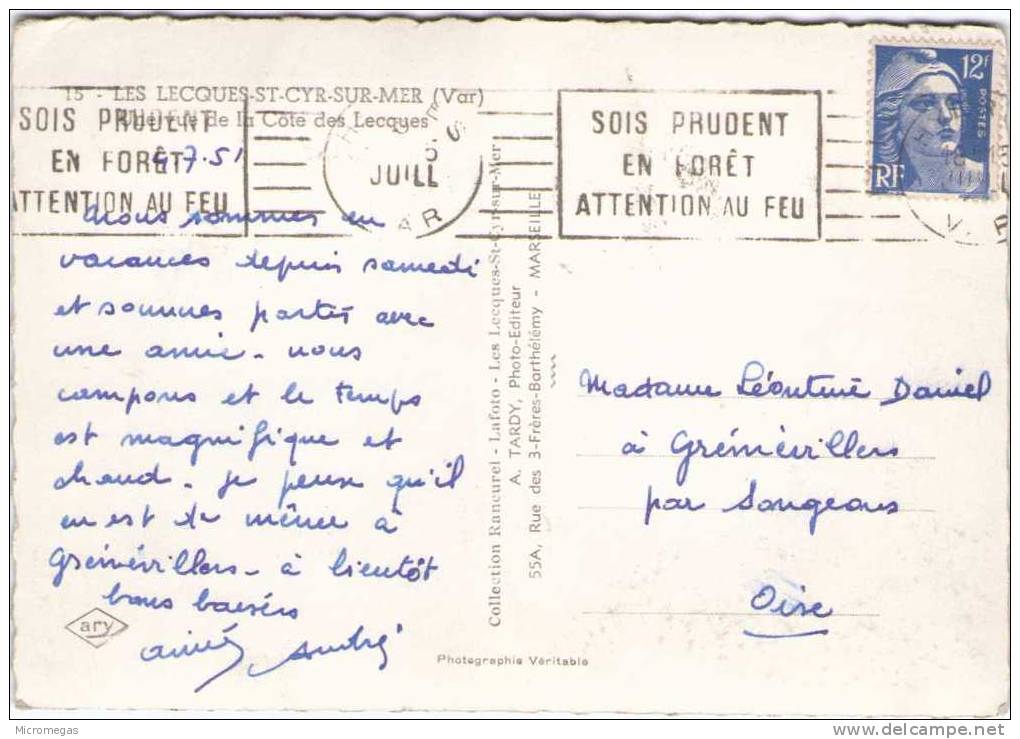 15 - LES LECQUES-ST-CYR-SUR-MER (Var)
Une vue de la Côte des Lecques
SOIS PRUDENT
EN FORÊT
ATTENTION AU FEU
5
JUILL
VAR
SOIS PRUDENT
EN FORÊT
ATTENTION AU FEU
12F
POSTES
RF
4.7.51
Nous sommes en
vacances depuis samedi
et sommes partis avec
une amie - nous
campons et le temps
est magnifique et
chaud - je pense qu'il
en est de même à
Grémévillers - à bientôt
bons baisers
Aimé, André
ary
Collection Rancurel - Lafoto - Les Lecques-St-Cyr-sur-Mer
A. TARDY, Photo-Editeur
55A, Rue des 3-Frères-Barthélémy - MARSEILLE
Photographie Véritable
Madame Léontine Daniel
à Grémévillers
par Songeons
Oise
Micromegas
www.delcampe.net